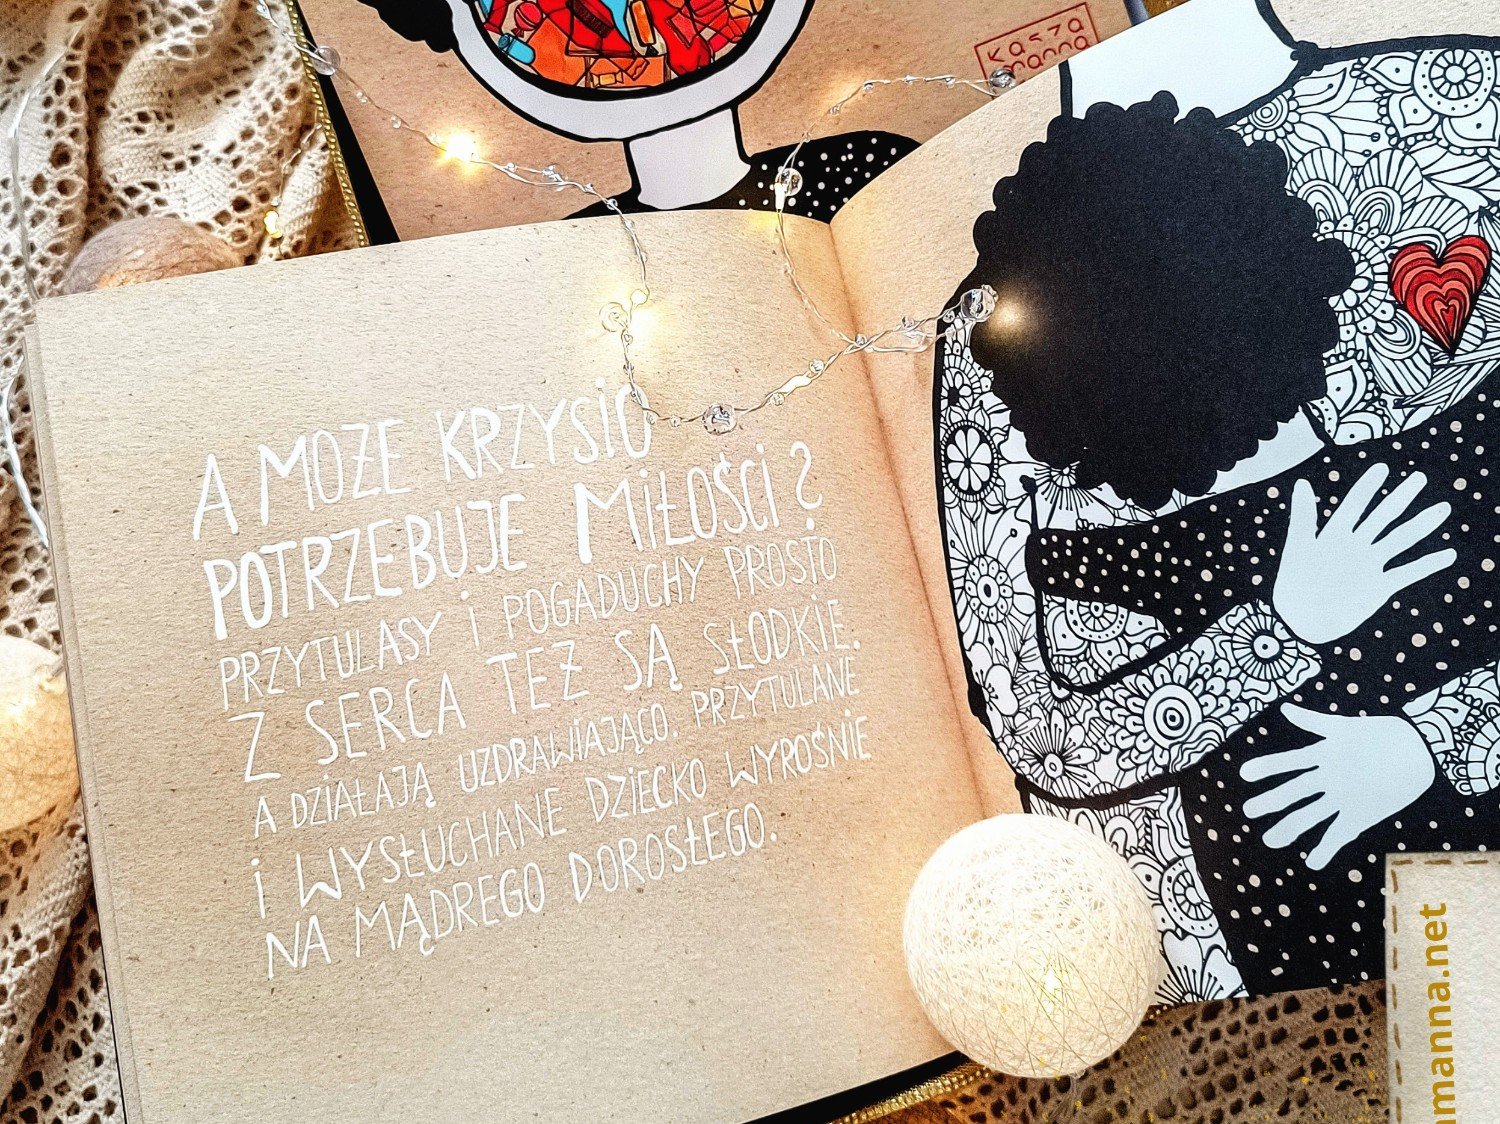 kasza
manna
A MOŻE KRZYSIO
POTRZEBUJE MIŁOŚCI?
PRZYTULASY I POGADUCHY PROSTO
Z SERCA TEŻ SĄ SŁODKIE.
A DZIAŁAJĄ UZDRAWIAJĄCO. PRZYTULANE
I WYSŁUCHANE DZIECKO WYROŚNIE
NA MĄDREGO DOROSŁEGO.
manna.net